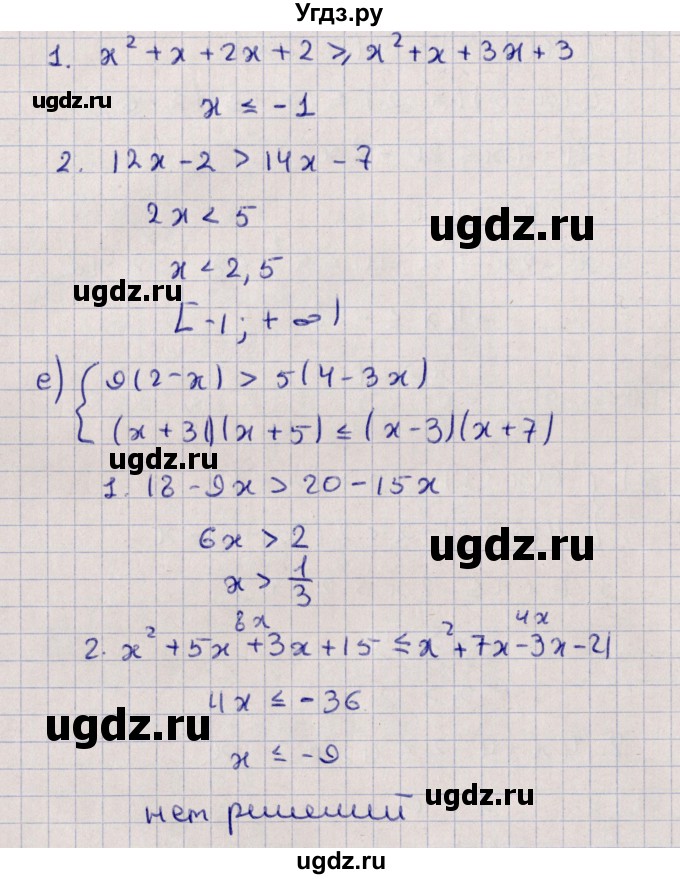 Угдз.ру
1. x² + x + 2x + 2 ⩾ x² + x + 3x + 3
ugdz.ru
x ≤ -1
2. 12x - 2 > 14x - 7
2x < 5
ugdz.ru
x < 2,5
ugdz.ru
[-1; +∞)
е) { 9(2-x) > 5(4-3x)
(x+3)(x+5) ≤ (x-3)(x+7)
ugdz.ru
1. 18 - 9x > 20 - 15x
6x > 2
ugdz.ru
x > 1/3
8x 4x
2. x² + 5x + 3x + 15 ≤ x² + 7x - 3x - 21
4x ≤ -36
ugdz.ru
x ≤ -9
ugdz.ru
нет решений
ugdz.ru